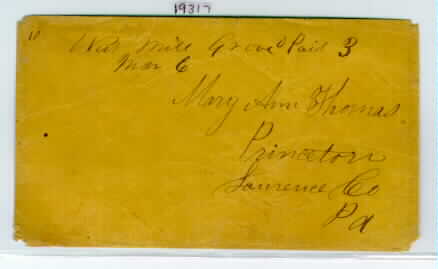 19317
West Mill Grove O Paid 3
Mar 6
Mary Ann Thomas.
Princeton
Lawrence Co
Pa